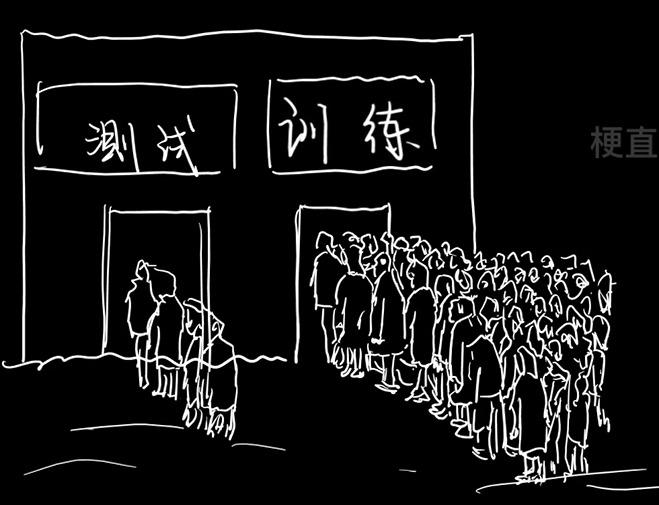 测试 训练
梗直